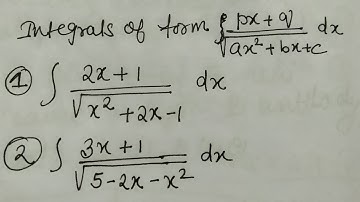 Integrals of form ∫ px + q / √ax² + bx + c dx
① ∫ 2x + 1 / √x² + 2x - 1 dx
② ∫ 3x + 1 / √5 - 2x - x² dx